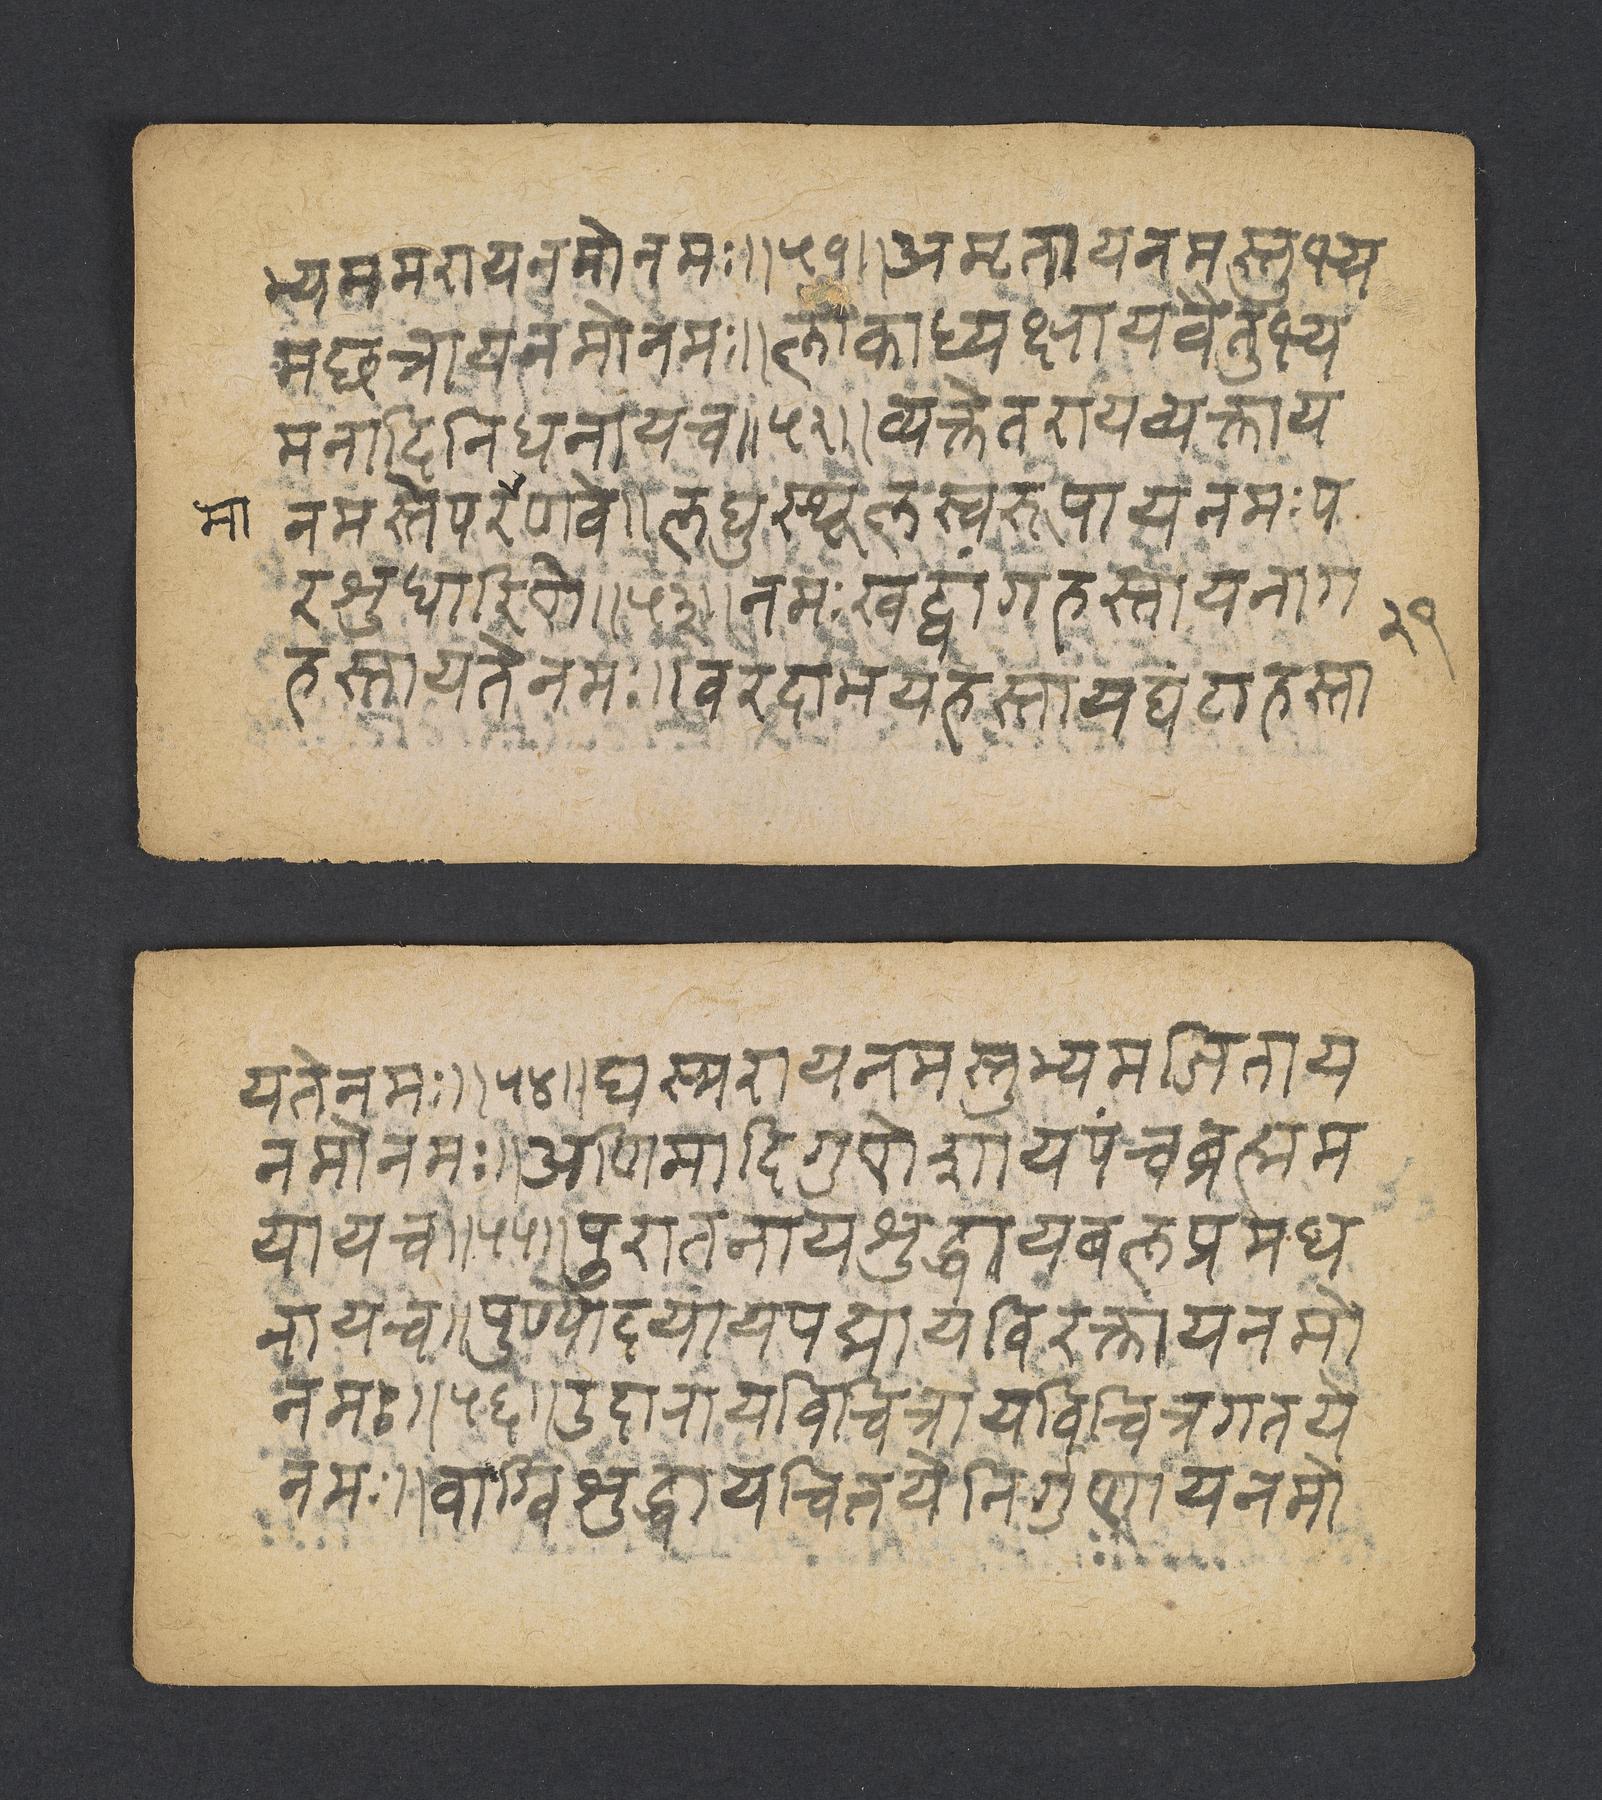 भ्यममरायनमोनमः॥५१॥अमृतायनमस्तुभ्य
मछत्रायनमोनमः॥लोकाध्यक्षायवैतुभ्य
मनादिनिधनायच॥५२॥व्यक्तेतरायव्यक्ताय
मा
नमस्तेपरैणवे॥लघुस्थूलस्वरूपायनमःप
रशुधारिणे॥५३॥नमःखट्वांगहस्तायनाग
२९
हस्तायतेनमः॥वरदाभयहस्तायघंटाहस्ता
यतेनमः॥५४॥घस्मरायनमस्तुभ्यमजिताय
नमोनमः॥अणिमादिगुणेशायपंचब्रह्मम
यायच॥५५॥पुरातनायशुद्धायबलप्रमथ
नायच॥पुण्योदयायपद्मायविरक्तायनमो
नमः॥५६॥उदारायविचित्रायविचित्रगतये
नमः॥वाग्विशुद्धायचितयेनिर्गुणायनमो